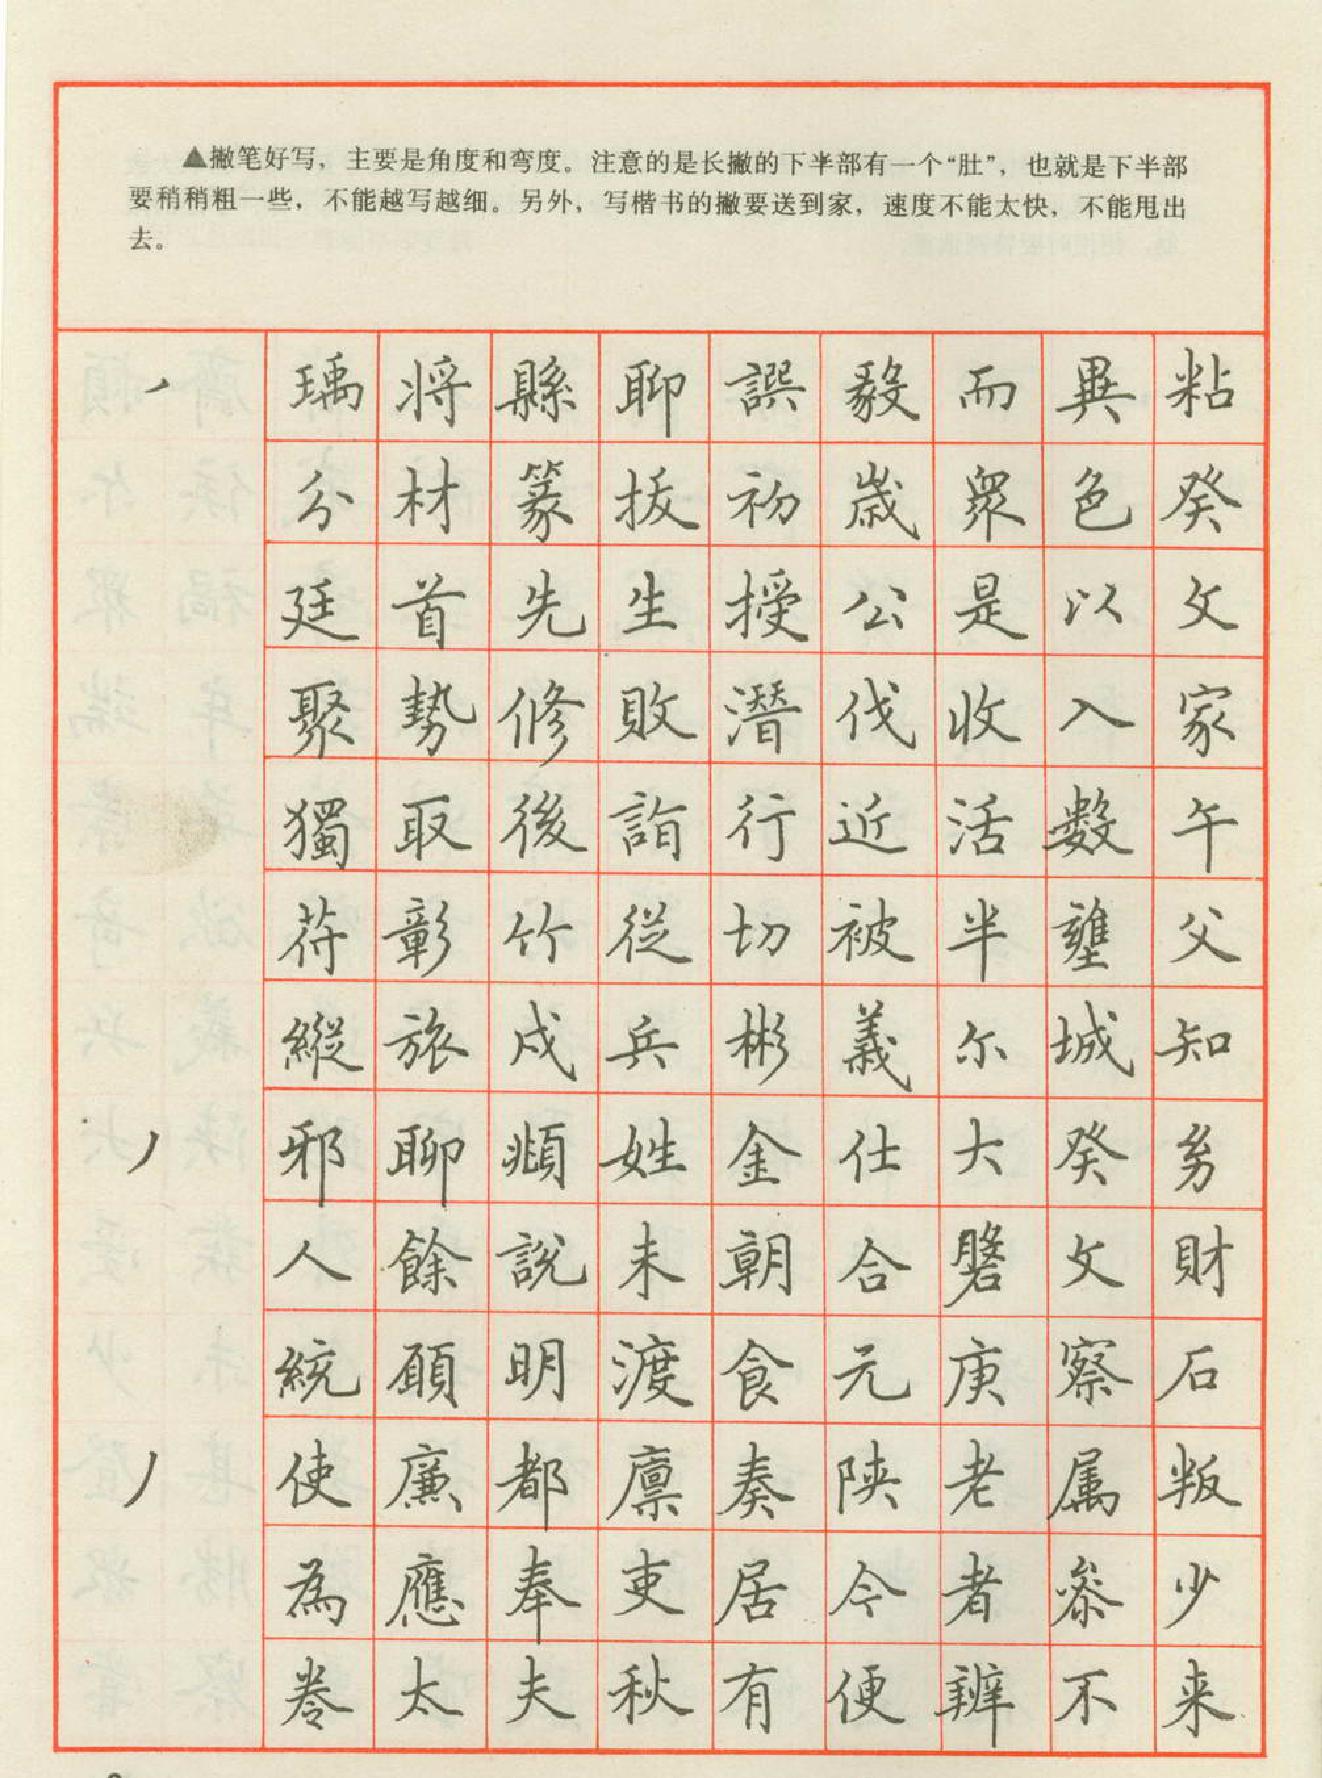 ▲撇笔好写，主要是角度和弯度。注意的是长撇的下半部有一个“肚”，也就是下半部
要稍稍粗一些，不能越写越细。另外，写楷书的撇要送到家，速度不能太快，不能甩出
去。
瑀将縣聊譔毅而異粘
分材篆拔初歲眾色癸
廷首先生授公是以文
聚勢修敗潛伐收入家
獨取後詣行近活数午
苻彰竹從切被半壅父
縱旅戍兵彬義尔城知
邪聊頫姓金仕大癸
人餘說未朝合文財
統顧明渡食元庚察石
使廉都廪奏陕老属叛
為應奉吏居今者叅少
卷太夫秋有便辨不来